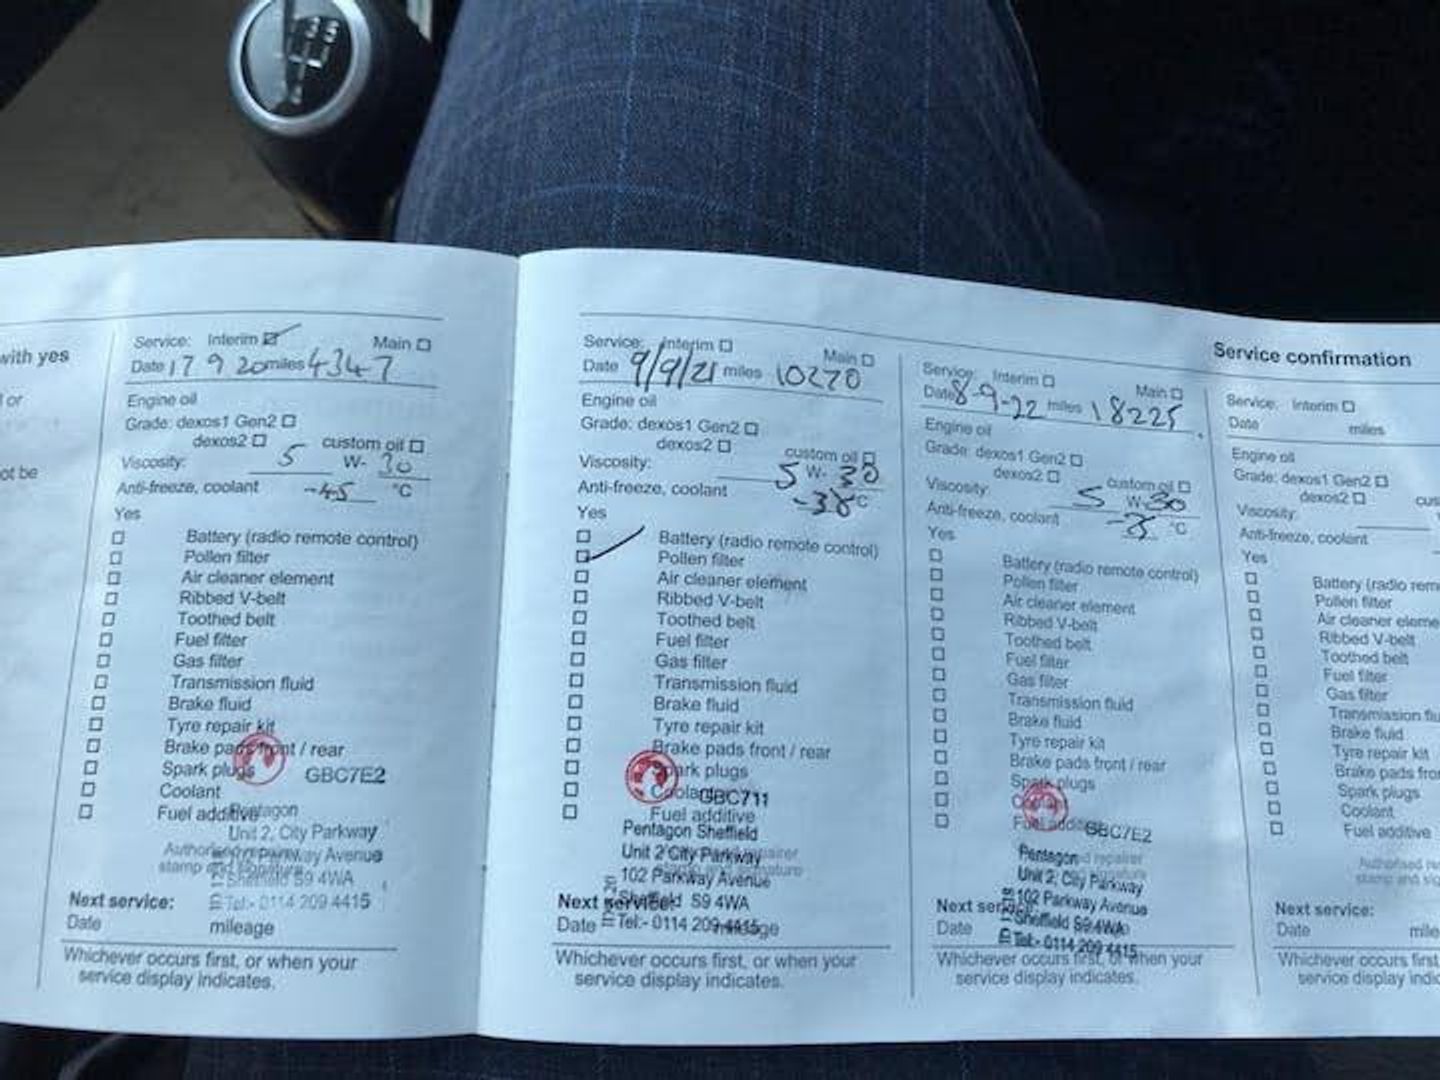 with yes
l or
ot be
Service: Interim Main
Date 17 9 20 miles 4347
Engine oil
Grade: dexos1 Gen2
dexos2 custom oil
Viscosity: 5 W- 30
Anti-freeze, coolant -45 °C
Yes
Battery (radio remote control)
Pollen filter
Air cleaner element
Ribbed V-belt
Toothed belt
Fuel filter
Gas filter
Transmission fluid
Brake fluid
Tyre repair kit
Brake pads front / rear
Spark plugs GBC7E2
Coolant
Fuel additive Pentagon
Unit 2, City Parkway
102 Parkway Avenue
stamp and signature
Sheffield S9 4WA
Next service: Tel:- 0114 209 4415
Date mileage
Whichever occurs first, or when your
service display indicates.
Service: Interim Main
Date 9/9/21 miles 10270
Engine oil
Grade: dexos1 Gen2
dexos2 custom oil
Viscosity: 5 W- 30
Anti-freeze, coolant °C
Yes
Battery (radio remote control)
Pollen filter
Air cleaner element
Ribbed V-belt
Toothed belt
Fuel filter
Gas filter
Transmission fluid
Brake fluid
Tyre repair kit
Brake pads front / rear
Spark plugs
Coolant GBC711
Fuel additive
Pentagon Sheffield
Unit 2 City Parkway
102 Parkway Avenue
Sheffield S9 4WA
Next service:
Date Tel:- 0114 209 4415 mileage
Whichever occurs first, or when your
service display indicates.
Service: Interim Main
Date 8-9-22 miles 18225
Engine oil
Grade: dexos1 Gen2
dexos2 custom oil
Viscosity: 5 W- 30
Anti-freeze, coolant °C
Yes
Battery (radio remote control)
Pollen filter
Air cleaner element
Ribbed V-belt
Toothed belt
Fuel filter
Gas filter
Transmission fluid
Brake fluid
Tyre repair kit
Brake pads front / rear
Spark plugs
Coolant
Fuel additive GBC7E2
Pentagon
Unit 2, City Parkway
102 Parkway Avenue
Next service: Sheffield S9 4WA
Date Tel:- 0114 209 4415
Whichever occurs first, or when your
service display indicates.
Service confirmation
Service: Interim
Date miles
Engine oil
Grade: dexos1 Gen2
dexos2 cus
Viscosity:
Anti-freeze, coolant
Yes
Battery (radio rem
Pollen filter
Air cleaner eleme
Ribbed V-belt
Toothed belt
Fuel filter
Gas filter
Transmission flu
Brake fluid
Tyre repair kit
Brake pads fro
Spark plugs
Coolant
Fuel additive
Authorised re
stamp and sig
Next service:
Date mile
Whichever occurs first
service display indic